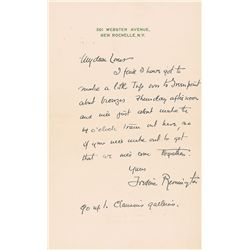 301 WEBSTER AVENUE,
NEW ROCHELLE, N.Y.
My dear
I find I have got to
make a little trip out to Greenpoint
about bronzes Thursday afternoon
and will just about make the
4 o'clock train out here, so
if you will make out to get
that we will come together.
Yours
Frederic Remington
go up to Clausen's galleries.